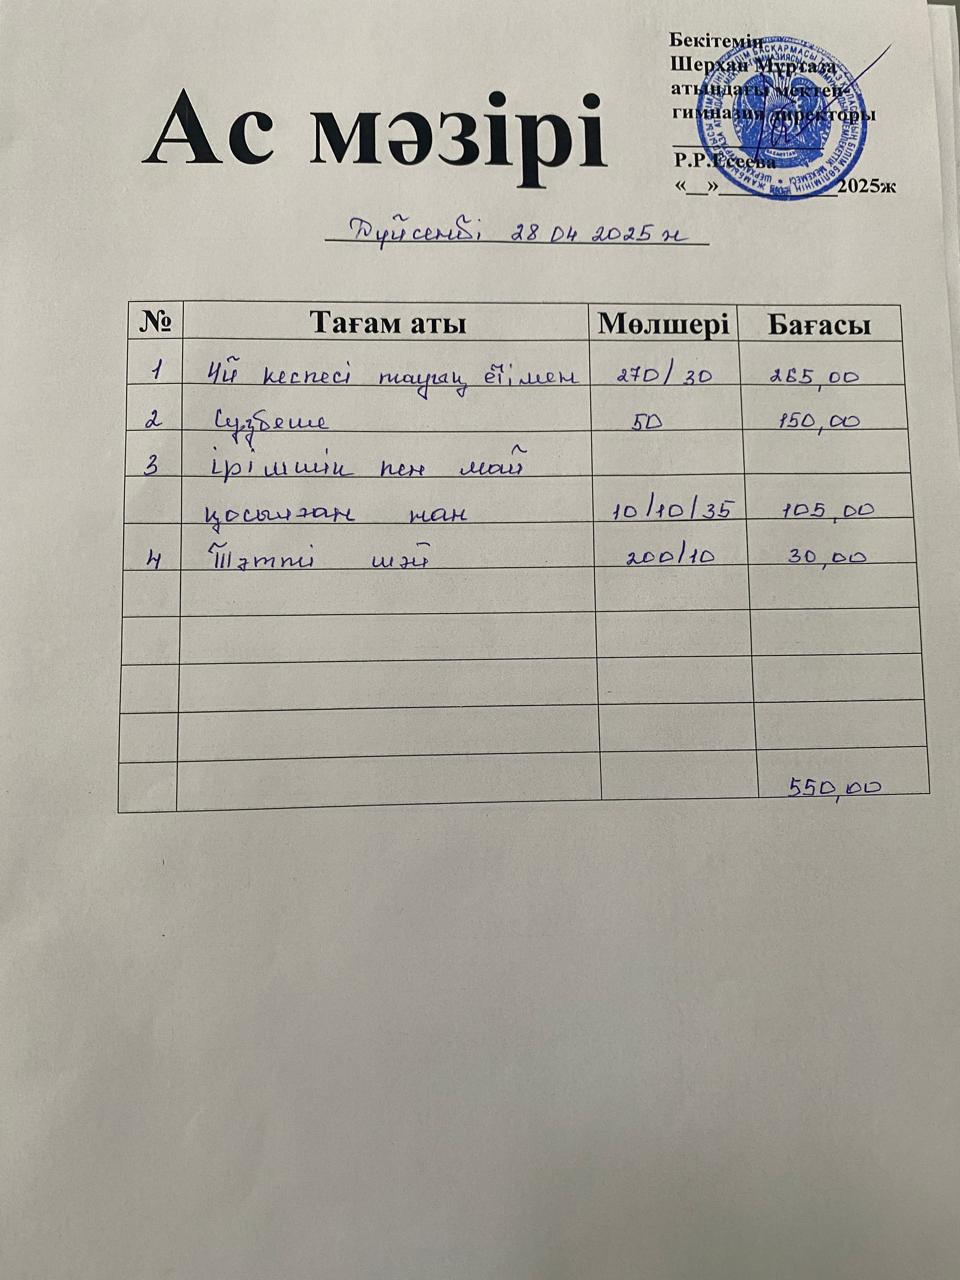 Бекітемін
Шерхан Мұртаза
атындағы мектеп-
гимназия директоры
Р.Р.Есеева
«__»___________2025ж
Ас мәзірі
Дүйсенбі 28 04 2025 ж
№ Тағам аты Мөлшері Бағасы
1 Үй кеспесі тауық етімен 270/30 265,00
2 Сүзбеше 50 150,00
3 ірімшік пен май
қосылған нан 10/10/35 105,00
4 Тәтті шәй 200/10 30,00
550,00